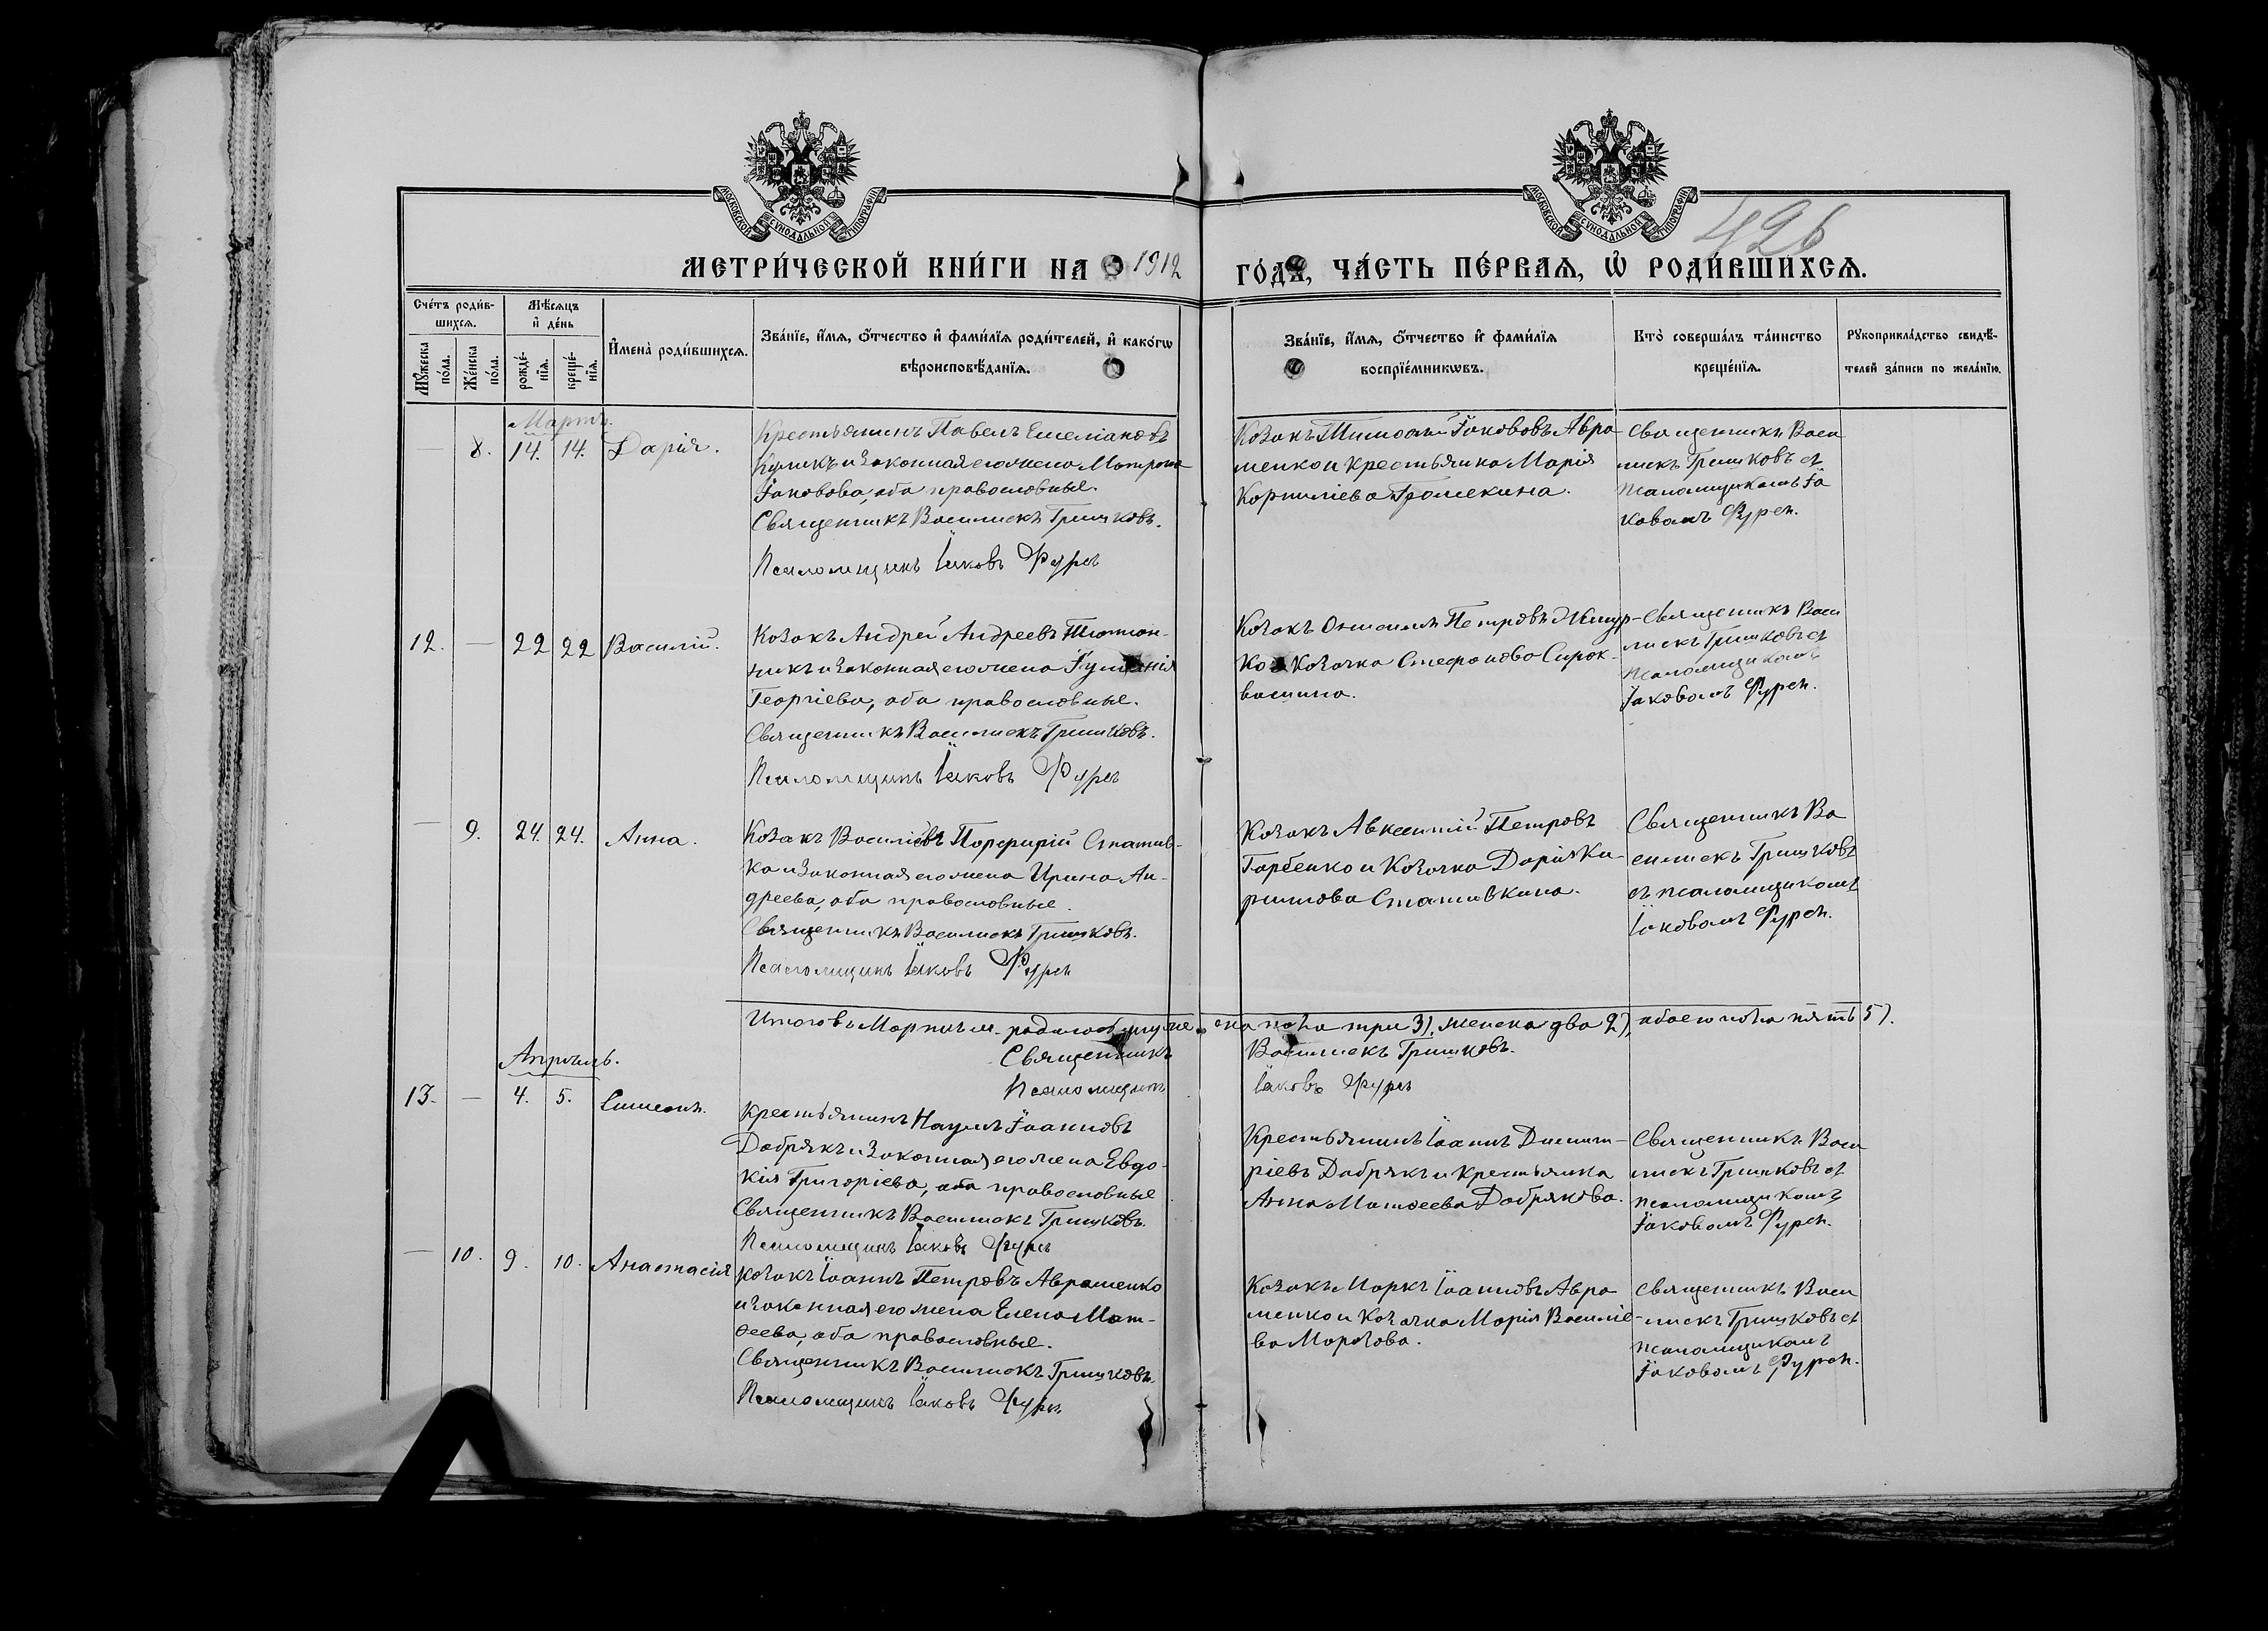 МОСКОВСКОЙ СѴНОДАЛЬНОЙ ТИПОГРАФІИ
МОСКОВСКОЙ СѴНОДАЛЬНОЙ ТИПОГРАФІИ
426
МЕТРИ́ЧЕСКОЙ КНИ́ГИ НА 1912 ГО́ДА, ЧА́СТЬ ПЕ́РВАЯ, Ѡ҆ РОДИ́ВШИХСЯ.
Сче́тъ роди́в-
шихся.
Му́жеска по́ла.
Же́нска по́ла.
Мѣ́сяцъ
и҆ де́нь
рожде́-
нїя.
креще́-
нїя.
И҆мена̀ роди́вшихся.
Зва́нїе, и҆́мя, ѻ҆́тчество и҆ фами́лїя роди́телей, и҆ како́гѡ
вѣроисповѣ́данїя.
Зва́нїе, и҆́мя, ѻ҆́тчество и҆ фами́лїя
воспрїе́мникѡвъ.
Кто̀ соверша́лъ та́инство
креще́нїя.
Рукоприкла́дство свидѣ́-
телей за́писи по жела́нїю.
Мартъ.
— 8. 14. 14. Дарія.
Крестьянинъ Павелъ Емеліановъ
Куликъ и законная его жена Матрона
Іаковова, оба православные.
Священникъ Василискъ Гришковъ.
Псаломщикъ Іаковъ Фурсъ
Козакъ Тимофей Іакововъ Авра
менко и крестьянка Марія
Корниліева Громекина.
Священникъ Васи
лискъ Гришковъ съ
псаломщикомъ Іа
ковомъ Фурсъ.
12. — 22 22 Василій.
Козакъ Андрей Андреевъ Тютюн-
никъ и законная его жена Гуліанія
Георгіева, оба православные.
Священникъ Василискъ Гришковъ.
Псаломщикъ Іаковъ Фурсъ
Козакъ Онисимъ Петровъ Жмур-
ко и козачка Стефанова Сирок-
вашина.
Священникъ Васи
лискъ Гришковъ съ
псаломщикомъ
Іаковомъ Фурсъ.
— 9. 24. 24. Анна.
Козакъ Василіевъ Порфирій Статив-
ка и законная его жена Ирина Ан-
дреева, оба православные.
Священникъ Василискъ Гришковъ.
Псаломщикъ Іаковъ Фурсъ
Козакъ Авксентій Петровъ
Горбенко и козачка Дарія Ки-
риллова Стативкина.
Священникъ Ва
силискъ Гришковъ
съ псаломщикомъ
Іаковомъ Фурсъ.
Итого въ Мартѣ м. родилось мужеска пола три 3), женска два 2), обоего пола пять 5).
Священникъ Василискъ Гришковъ.
Псаломщикъ Іаковъ Фурсъ
Апрѣль.
13. — 4. 5. Симеонъ.
Крестьянинъ Наумъ Іоанновъ
Добрякъ и законная его жена Евдо-
кія Григоріева, оба православные
Священникъ Василискъ Гришковъ.
Псаломщикъ Іаковъ Фурсъ
Крестьянинъ Іоаннъ Димит-
ріевъ Добрякъ и крестьянка
Анна Матѳеева Добрякова.
Священникъ Васи
лискъ Гришковъ съ
псаломщикомъ
Іаковомъ Фурсъ.
— 10. 9. 10. Анастасія
Козакъ Іоаннъ Петровъ Авраменко
и законная его жена Елена Мат-
ѳеева, оба православные.
Священникъ Василискъ Гришковъ.
Псаломщикъ Іаковъ Фурсъ
Козакъ Маркъ Іоанновъ Авра
менко и козачка Марія Василіе-
ва Морозова.
Священникъ Васи
лискъ Гришковъ съ
псаломщикомъ
Іаковомъ Фурсъ.